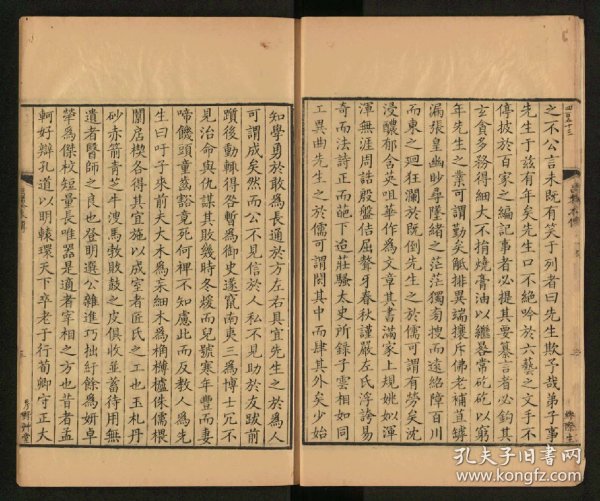 之不公言未既有笑于列者曰先生欺予哉弟子事
先生于茲有年矣先生口不絕吟於六藝之文手不
停披於百家之編記事者必提其要纂言者必鉤其
玄貪多務得細大不捐燒膏油以繼晷常矻矻以窮
年先生之業可謂勤矣觝排異端攘斥佛老補苴罅
漏張皇幽眇尋墜緒之茫茫獨旁搜而遠紹障百川
而東之迴狂瀾於既倒先生之於儒可謂有勞矣沈
浸醲郁含英咀華作為文章其書滿家上規姚姒渾
渾無涯周誥殷盤佶屈聱牙春秋謹嚴左氏浮誇易
奇而法詩正而葩下迨莊騷太史所錄子雲相如同
工異曲先生之於儒可謂閎其中而肆其外矣少始
知學勇於敢為長通於方左右具宜先生之於為人
可謂成矣然而公不見信於人私不見助於友跋前
躓後動輒得咎暫為御史遂竄南夷三為博士冗不
見治命與仇謀其敗幾時冬煖而兒號寒年豐而妻
啼饑頭童齒豁竟死何裨不知慮此而反教人為先
生曰吁子來前夫大木為杗細木為桷欂櫨侏儒椳
闑扂楔各得其宜施以成室者匠氏之工也玉札丹
砂赤箭青芝牛溲馬勃敗鼓之皮俱收並蓄待用無
遺者醫師之良也登明選公雜進巧拙紆餘為妍卓
犖為傑校短量長唯器是適者宰相之方也昔者孟
軻好辯孔道以明轅環天下卒老于行荀卿守正大
孔夫子旧书网
www.kongfz.com